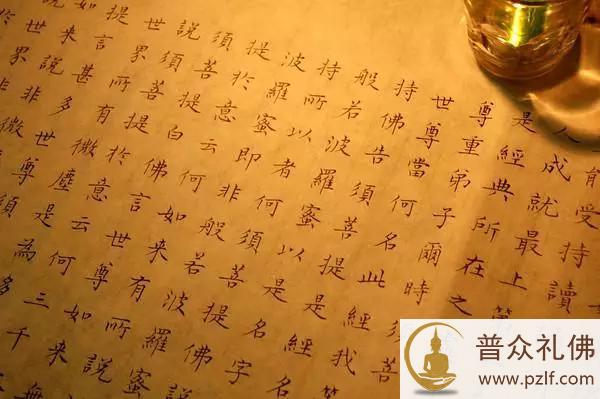 能受持讀
人成就最上第
是經典所在之
尊重弟子爾時須菩
世尊當何名此經我等
持佛告須菩提是經名
般若波羅蜜以是名字
持所以者何須菩提佛說
波羅蜜即非般若波羅蜜
提於意云何如來有所說
須菩提白佛言世尊如來無
說須菩提於意云何三千
世界所有微塵是為多
提言甚多世尊須
如來說非微
說世界非
於
普众礼佛
www.pzlf.com